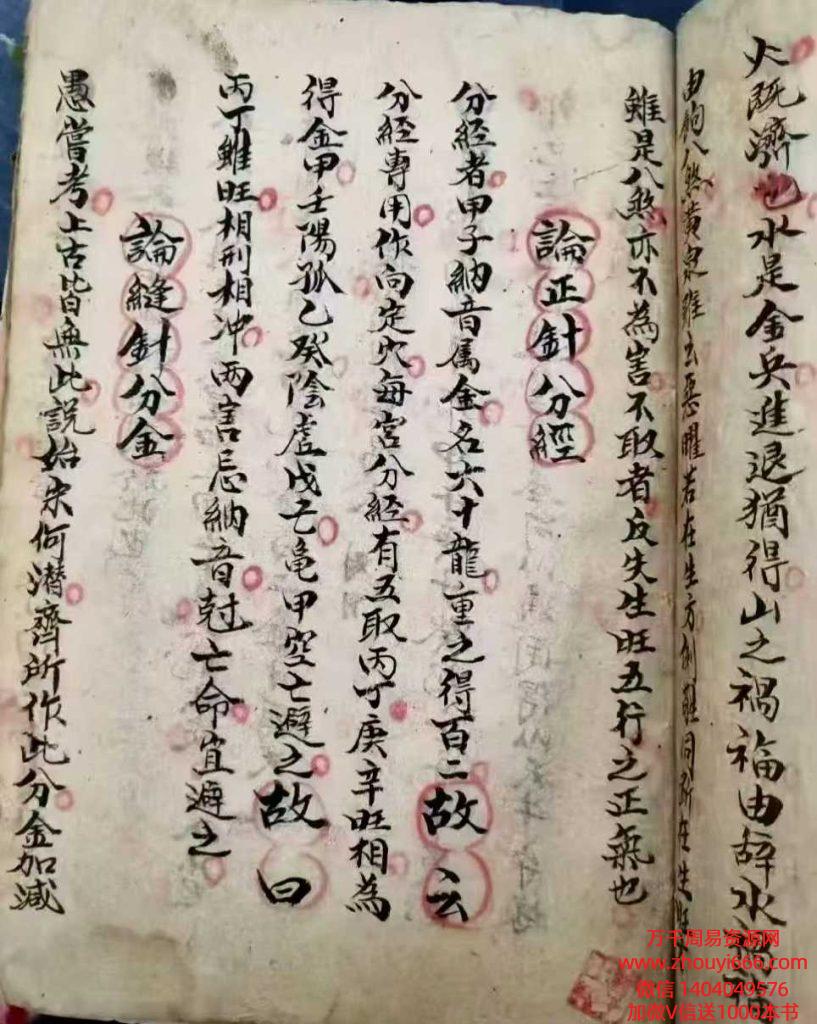 火既濟也水是金兵進退猶得山之禍福由辭水
八煞黃泉雖云惡曜若在生方例難同
雖是八煞亦不為害不取者反失生旺五行之正氣也
論正針分經
分經者甲子納音属金名六十龍重之得百二故云
分經專用作向定穴每宮分經有五取丙丁庚辛旺相為
得金甲壬陽孤乙癸陰虛戊己龜甲空亡避之故曰
丙丁雖旺相刑相冲兩害忌納音尅亡命宜避之
論縫針分金
愚嘗考上古皆無此說始宋何潛齊所作此分金加減
万千周易资源网
www.zhouyi666.com
微信 1404049576
加微V信送1000本书